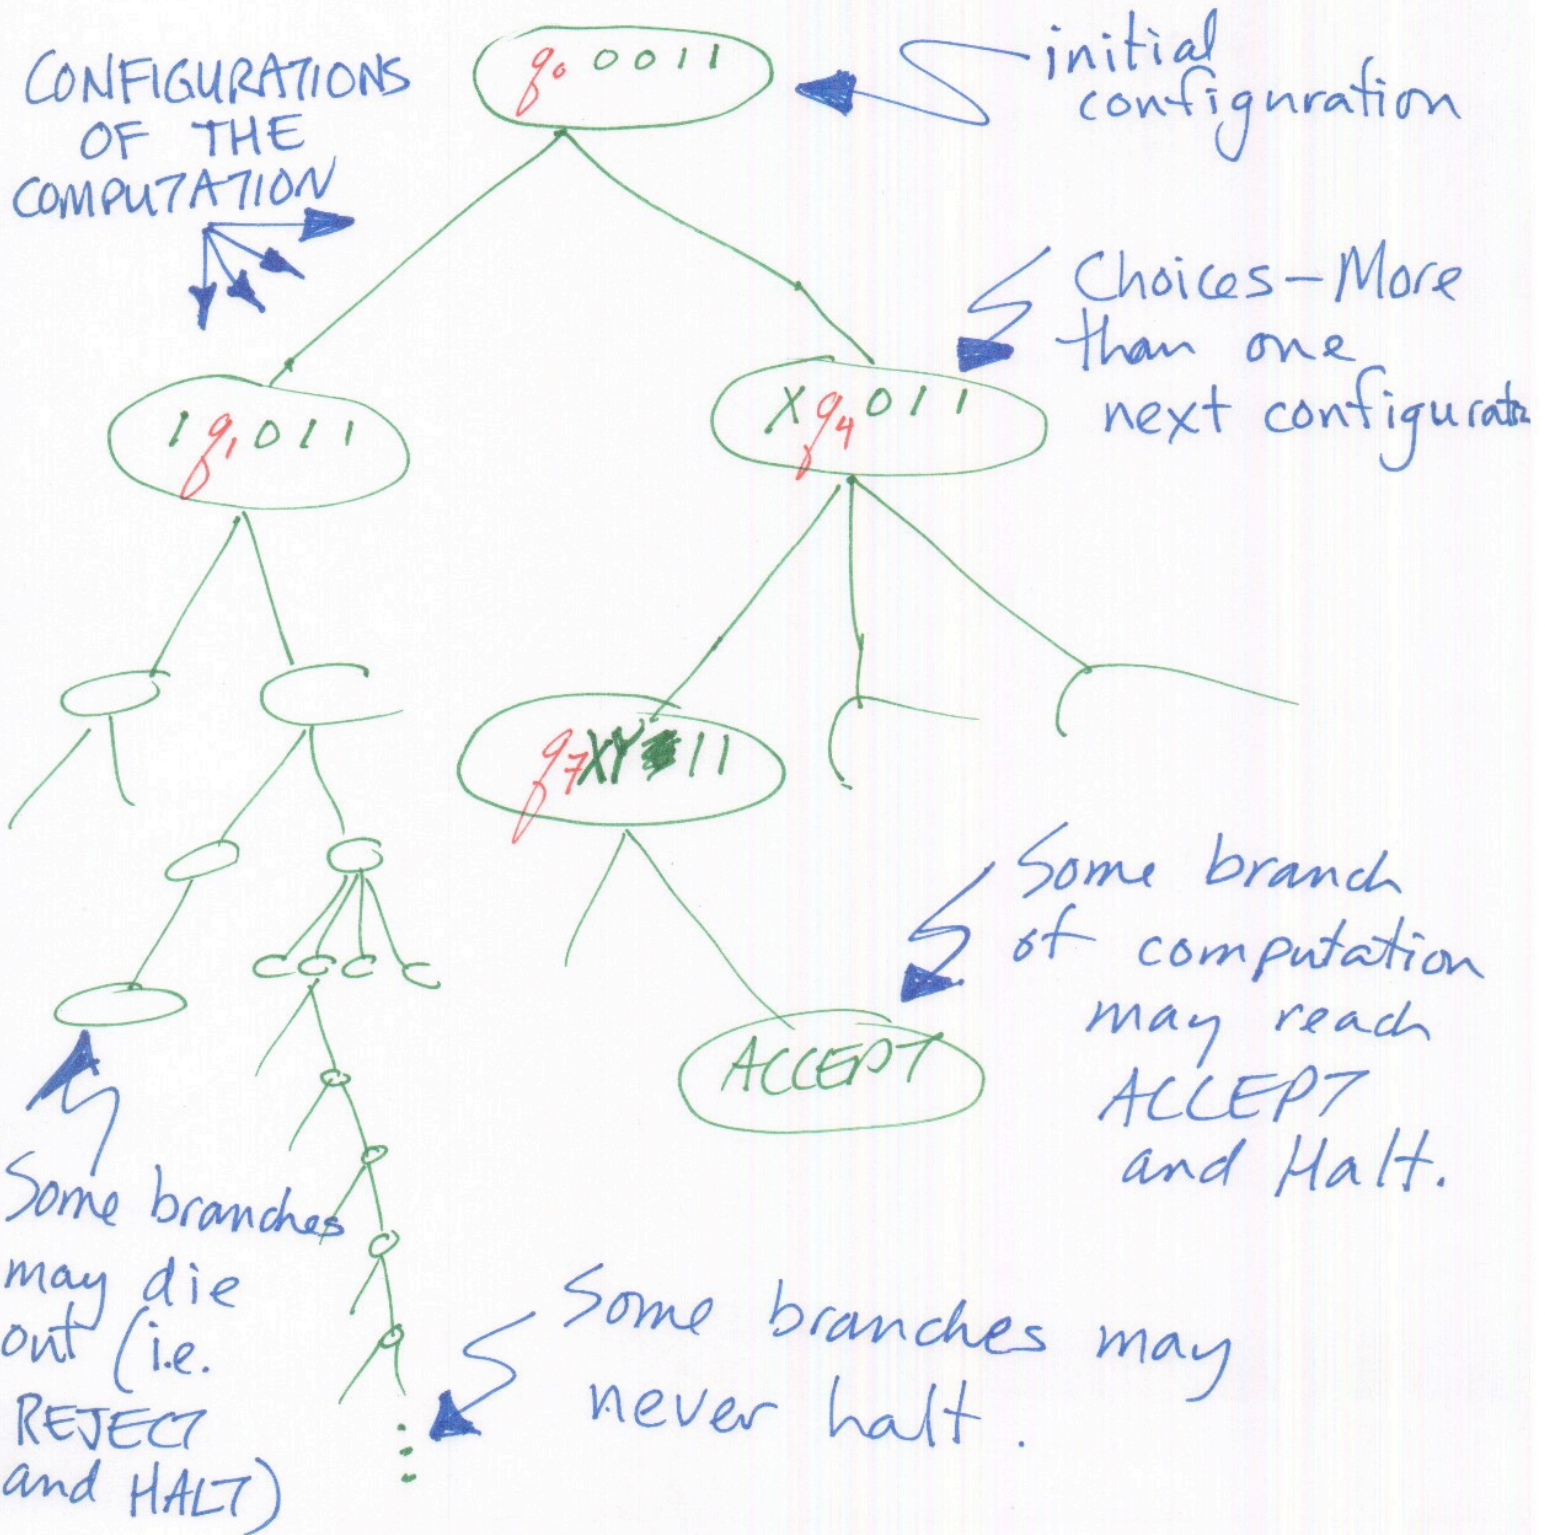 CONFIGURATIONS
OF THE
COMPUTATION
q₀ 0011
initial
configuration
Choices – More
than one
next configurat
1 q₁ 011
X q₄ 011
q₇ XY 11
ACCEPT
Some branch
of computation
may reach
ACCEPT
and Halt.
Some branches
may die
out (i.e.
REJECT
and HALT)
Some branches may
never halt.